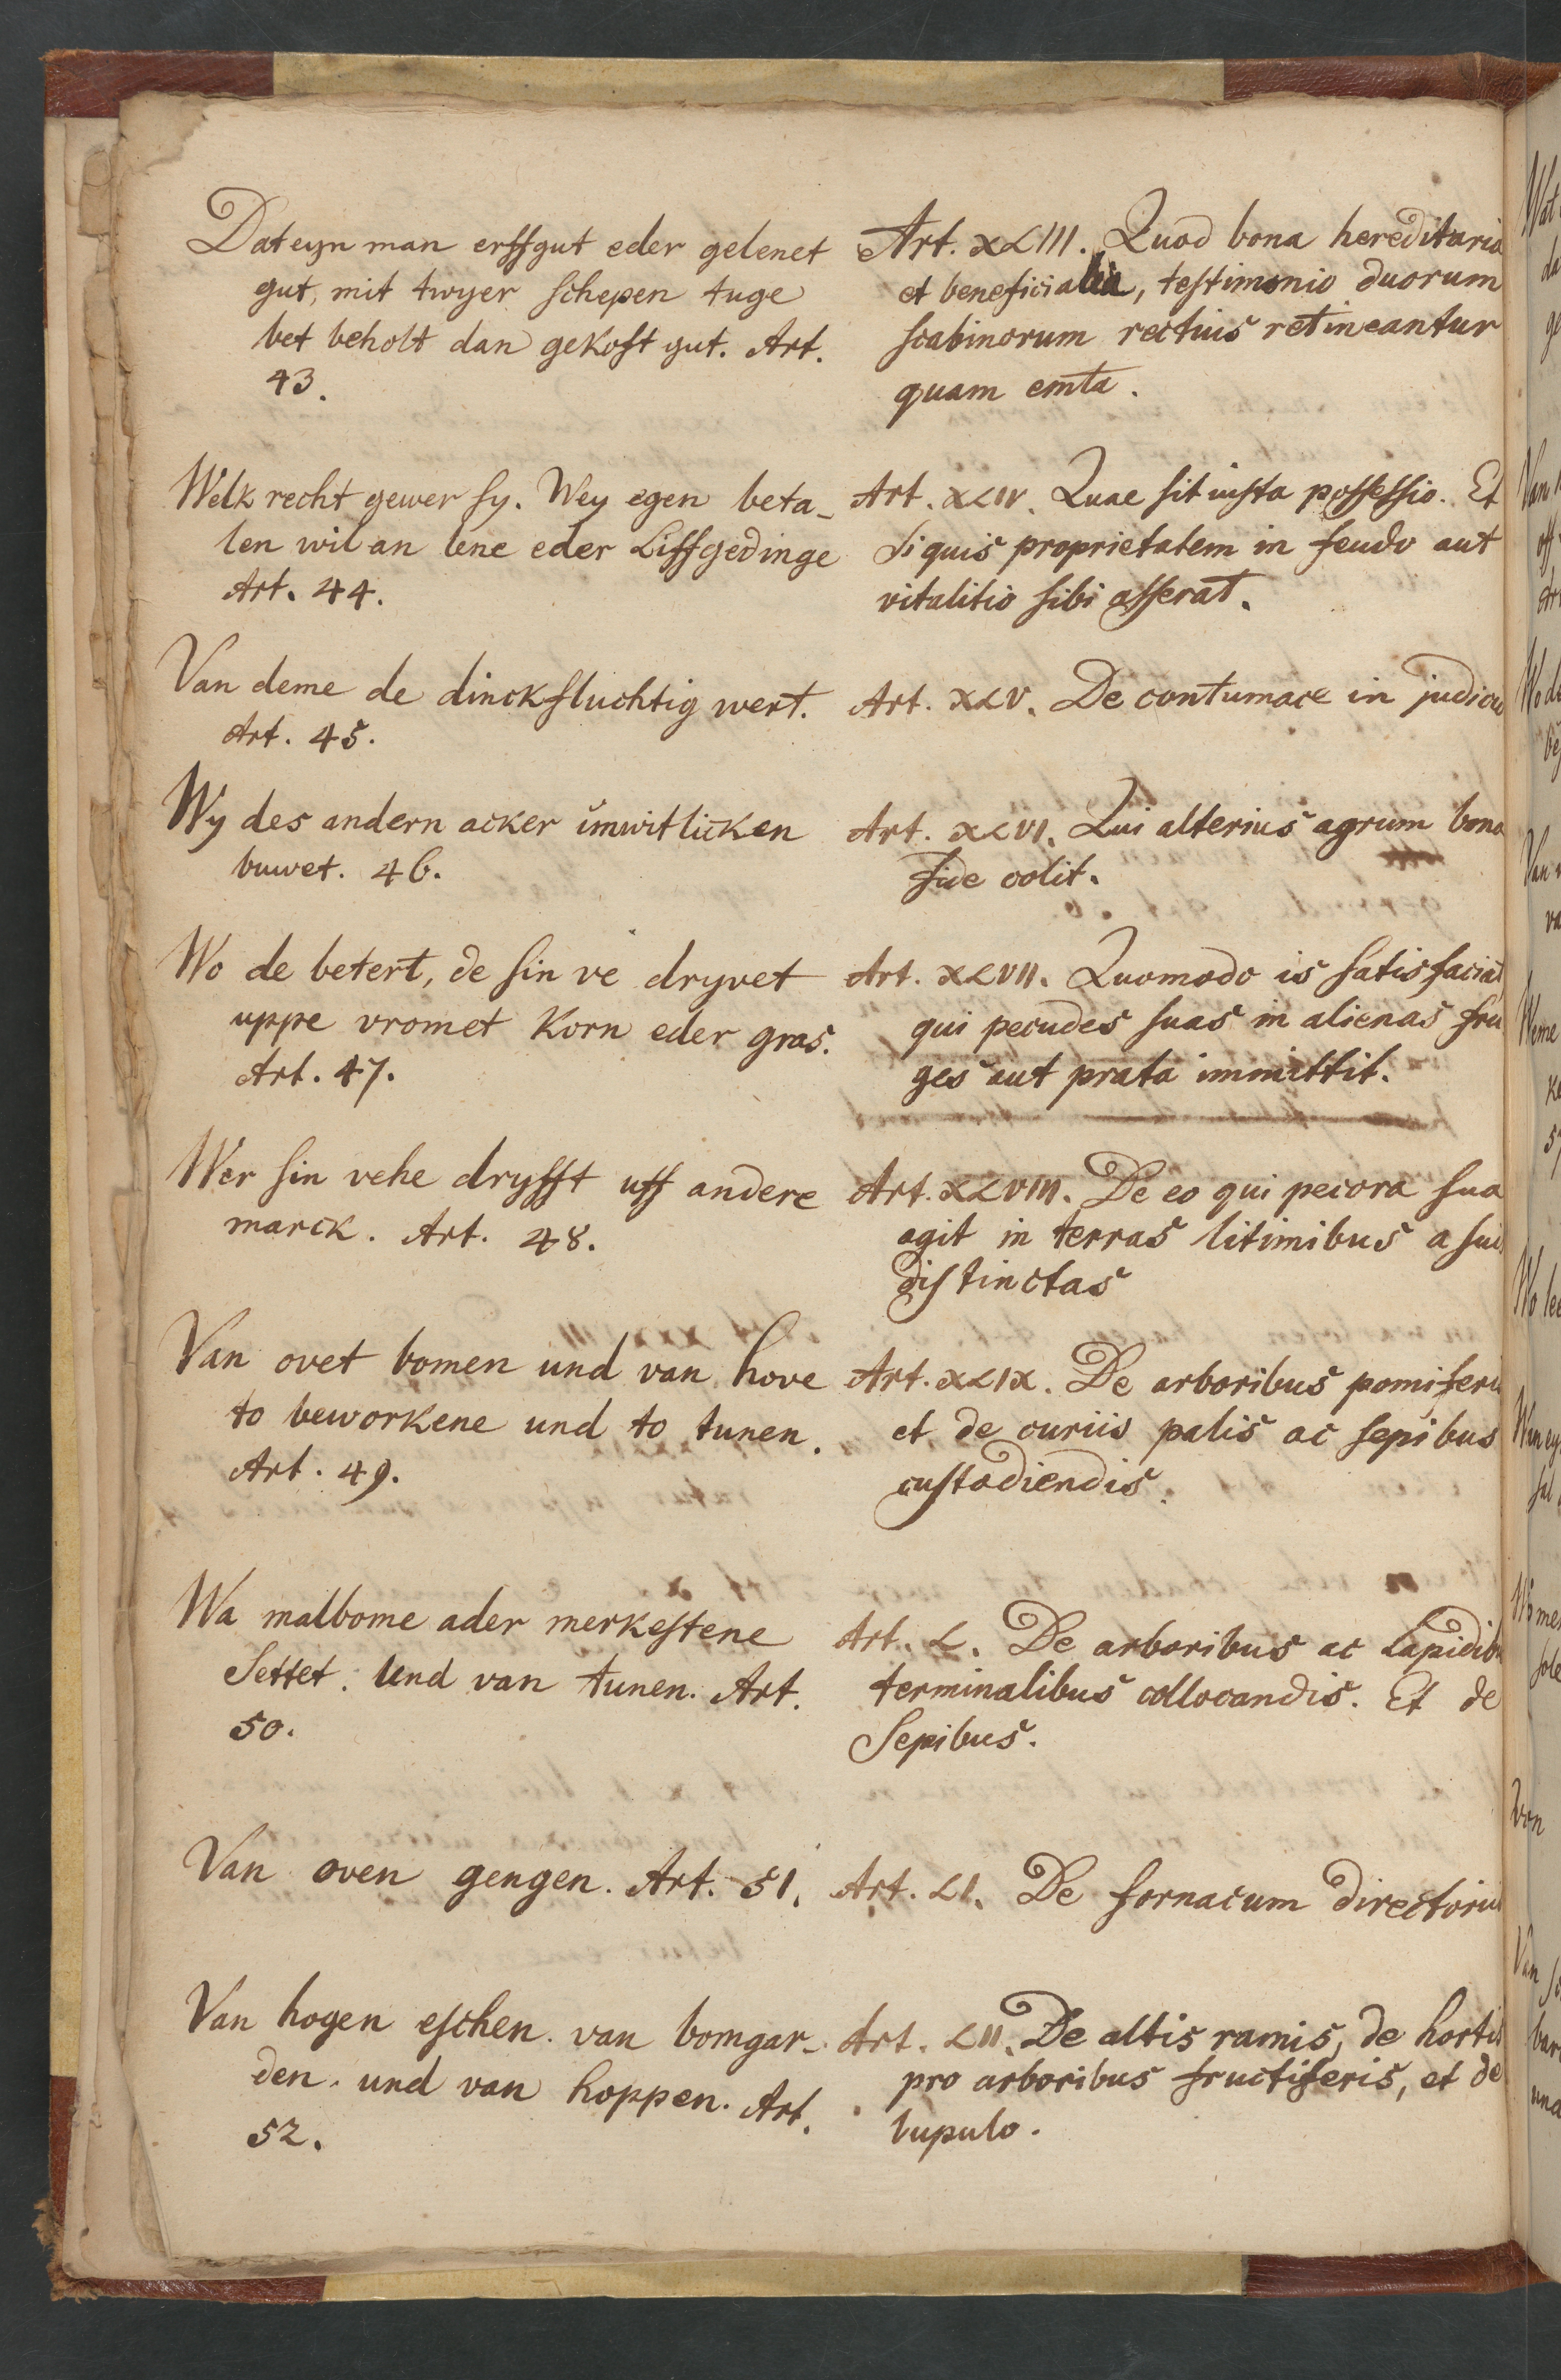 Dat eyn man erffgut eder gelenet
gut, mit twyer schepen tuge
bet beholt dan gekoft gut. Art.
43.
Welk recht gewer sy. Wey egen beta-
len wil an lene eder Liffgedinge
Art. 44.
Van deme de dinckfluchtig wert.
Art. 45.
Wy des andern acker ŭnwitlicken
buwet. 46.
Wo de betert, de sin ve dryvet
uppe vromet Korn eder gras.
Art. 47.
Wer sin vehe dryfft uff andere
marck. Art. 48.
Van ovet bomen und van hove
to beworkene und to tunen.
Art. 49.
Wa malbome ader merkestene
Settet. Und van tunen. Art.
50.
Van oven gengen. Art. 51.
Van hogen eschen. van bomgar-
den. und van hoppen. Art.
52.
Art. XLIII. Quod bona hereditaria
et beneficialia, testimonio duorum
scabinorum rectius retineantur
quam emta.
Art. XLIV. Quae sit iusta possessio. Et
Si quis proprietatem in feudo aut
vitalitio sibi asserat.
Art. XLV. De contumace in judicio
Art. XLVI. Qui alterius agrum bona
fide colit.
Art. XLVII. Quomodo is satisfaciat
qui pecudes suas in alienas fru
ges aut prata immittit.
Art. XLVIII. De eo qui pecora sua
agit in terras litimibus a suis
distinctas
Art. XLIX. De arboribus pomiferis
et de curiis palis ac sepibus
custodiendis.
Art. L. De arboribus ac Lapidibu
terminalibus collocandis. Et de
Sepibus.
Art. LI. De fornacum directoriis
Art. LII. De altis ramis, de hortis
pro arboribus fructiferis, et de
lupulo.